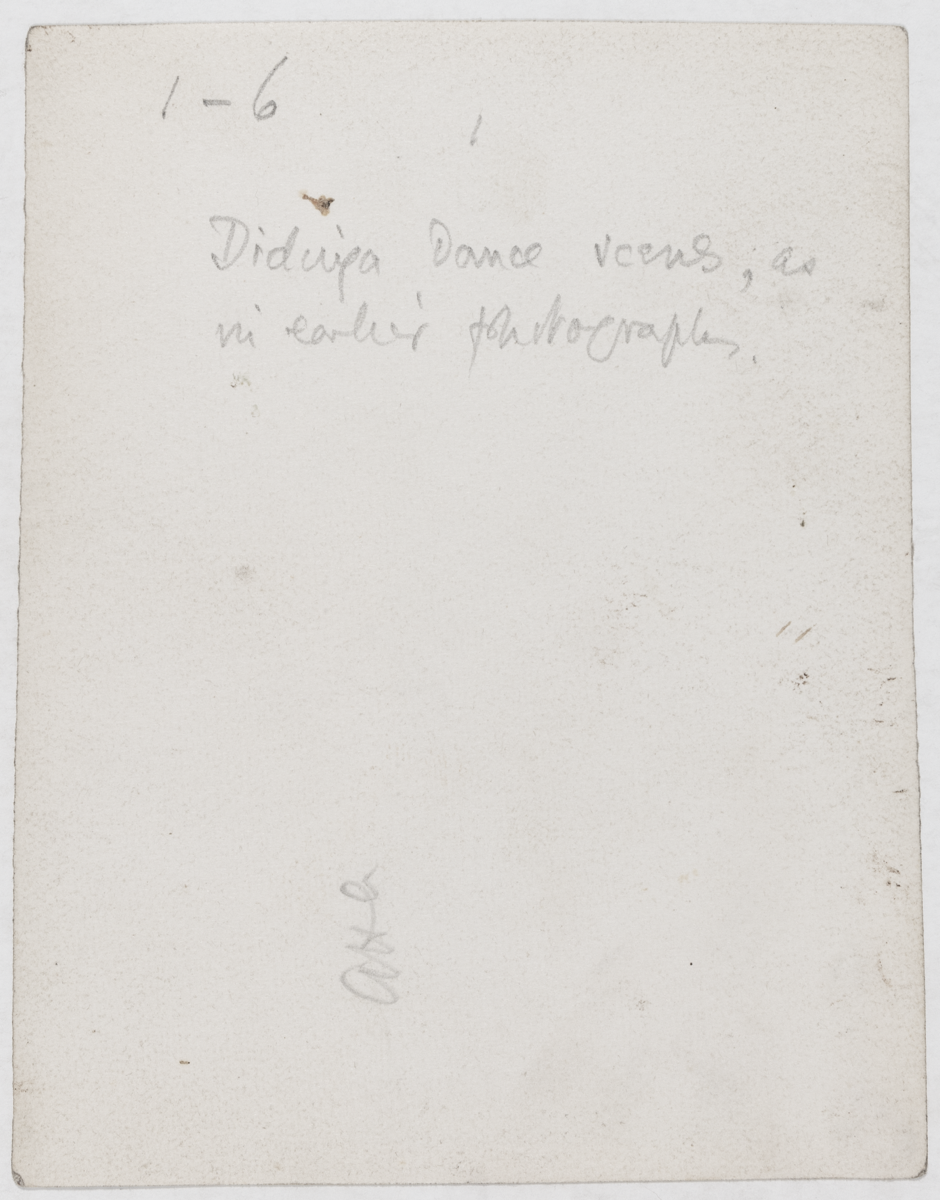 1 - 6
1
Didinga Dance scenes, as
in earlier photographs.